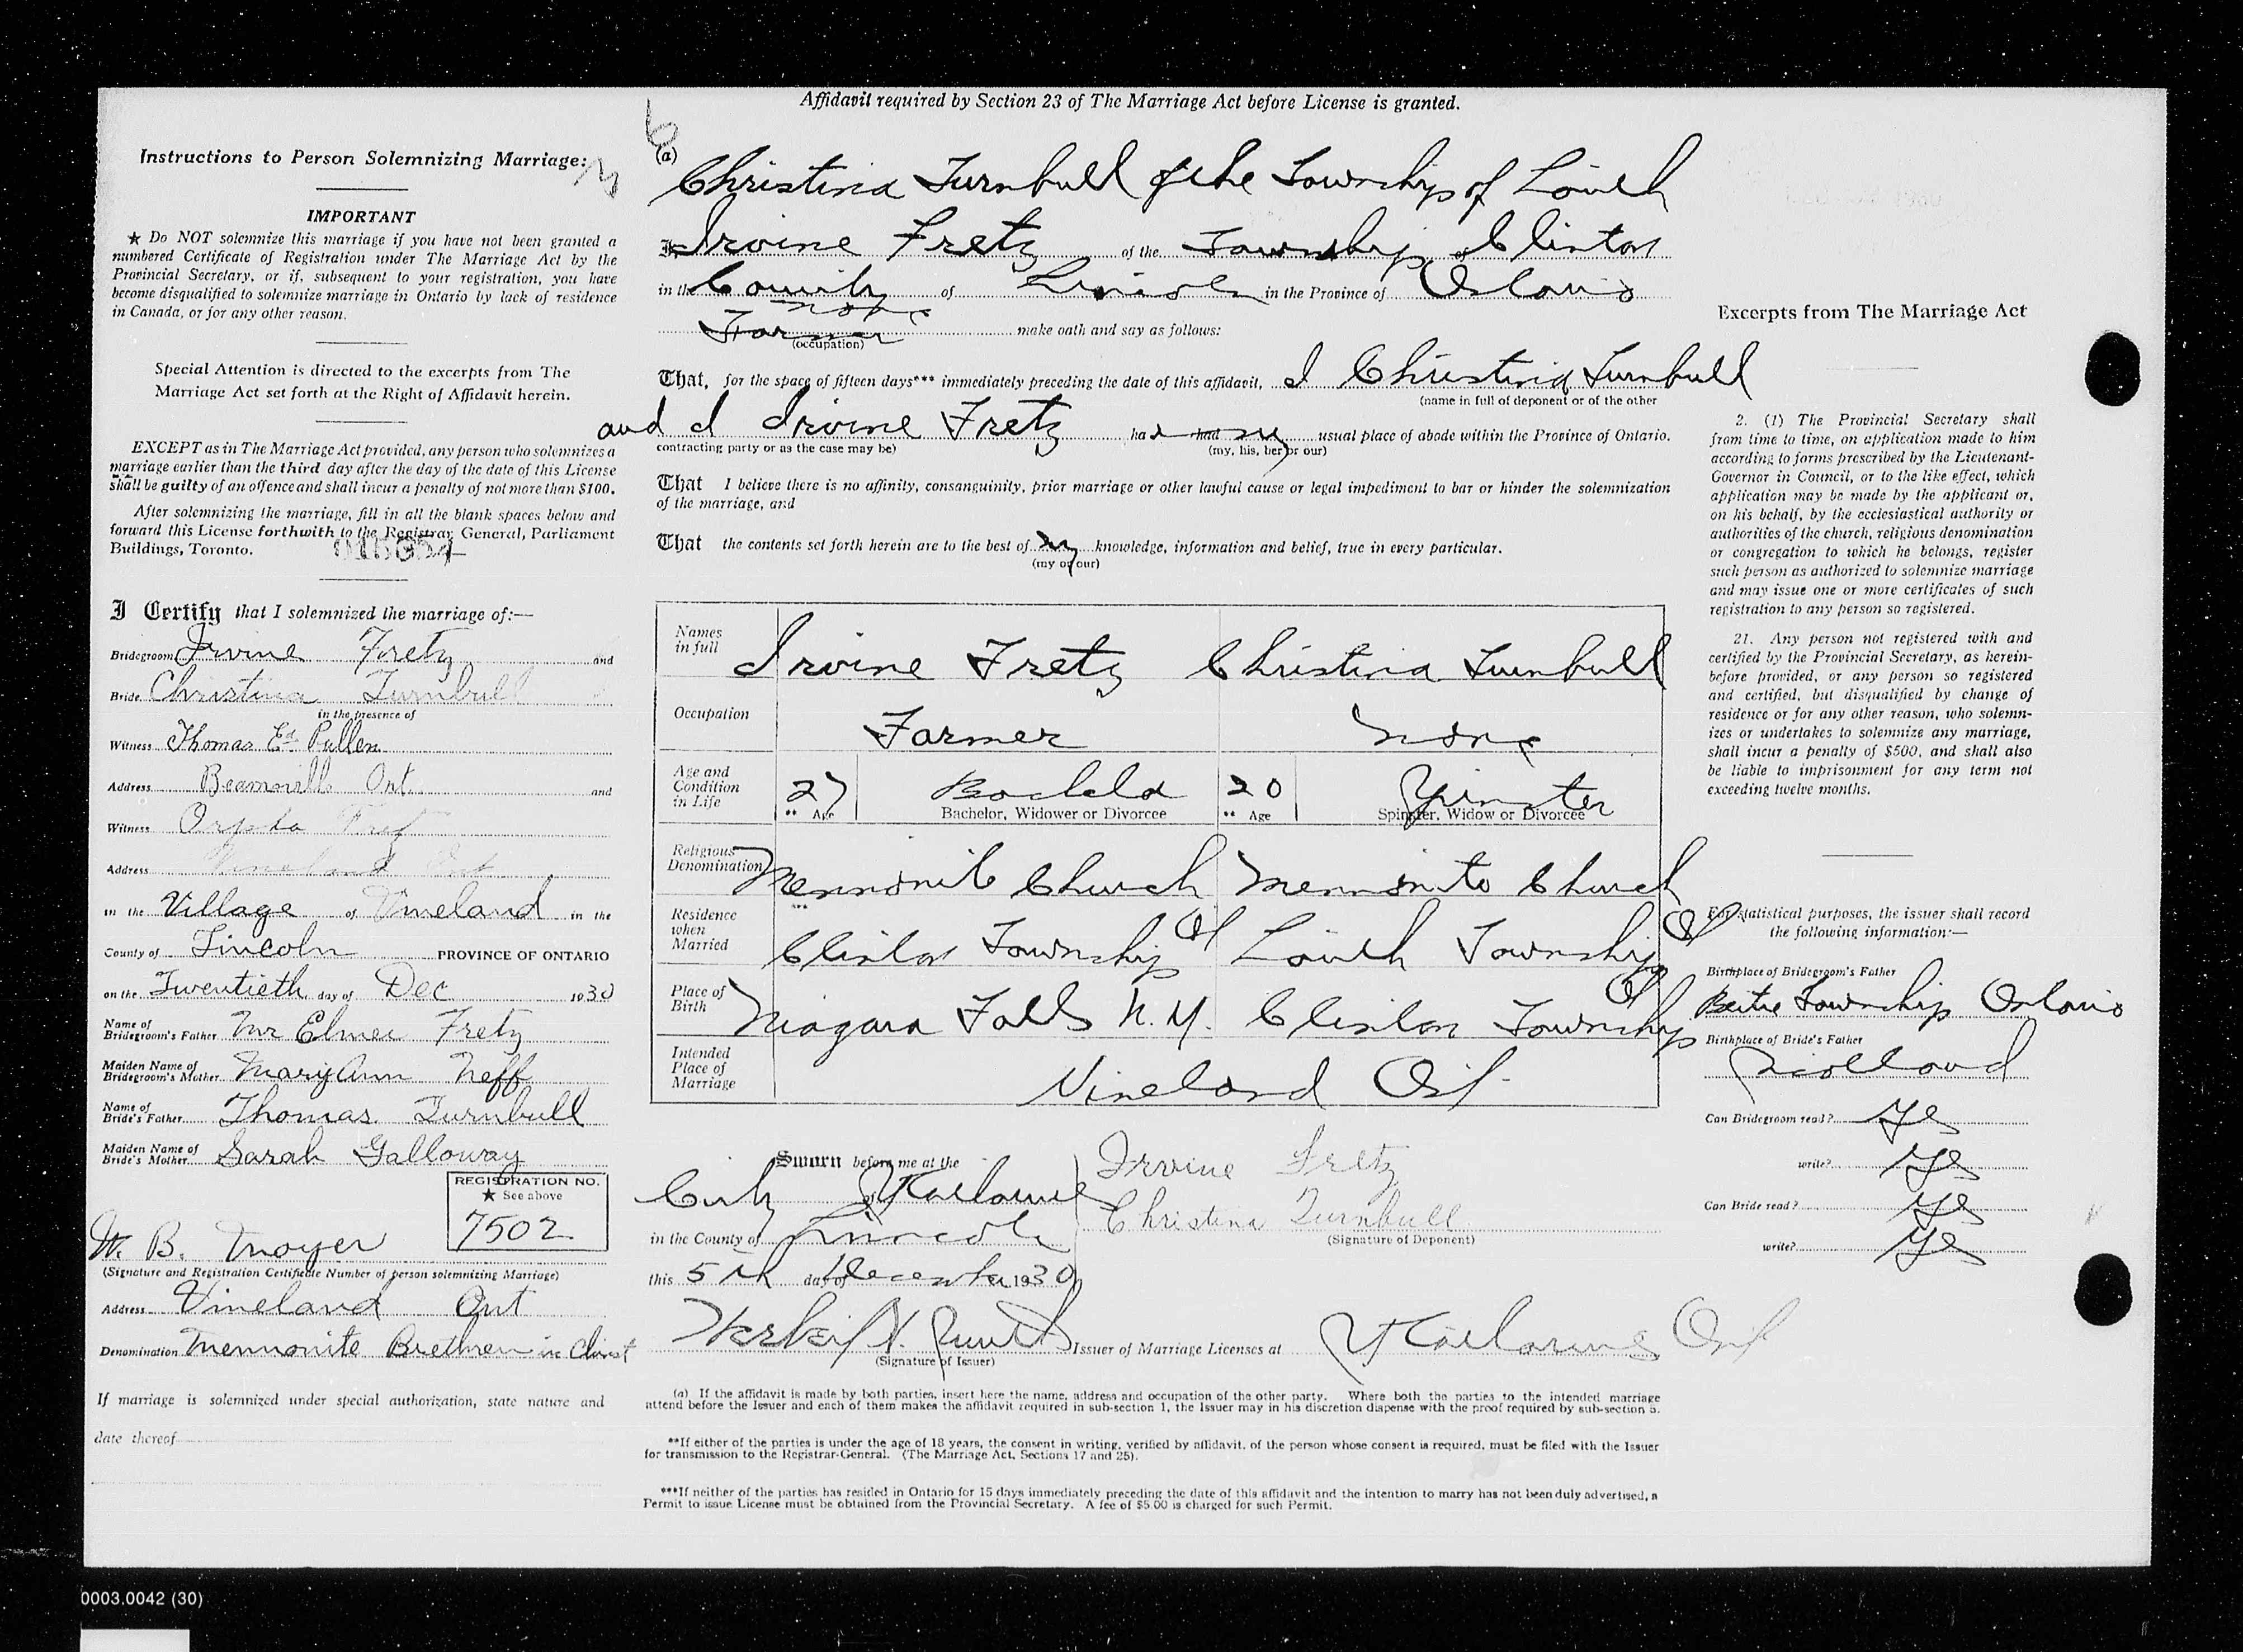 Affidavit required by Section 23 of The Marriage Act before License is granted.
Instructions to Person Solemnizing Marriage:
IMPORTANT
★ Do NOT solemnize this marriage if you have not been granted a
numbered Certificate of Registration under The Marriage Act by the
Provincial Secretary, or if, subsequent to your registration, you have
become disqualified to solemnize marriage in Ontario by lack of residence
in Canada, or for any other reason.
Special Attention is directed to the excerpts from The
Marriage Act set forth at the Right of Affidavit herein.
EXCEPT as in The Marriage Act provided, any person who solemnizes a
marriage earlier than the third day after the day of the date of this License
shall be guilty of an offence and shall incur a penalty of not more than $100.
After solemnizing the marriage, fill in all the blank spaces below and
forward this License forthwith to the Registrar General, Parliament
Buildings, Toronto.
I Certify that I solemnized the marriage of:—
Bridegroom Irvine Fretz and
Bride Christina Turnbull
in the presence of
Witness Thomas Ed. Pullen
Address Beamsville Ont. and
Witness Orpha Fretz
Address Vineland Ont
in the Village of Vineland in the
County of Lincoln PROVINCE OF ONTARIO
on the Twentieth day of Dec 1930
Name of Bridegroom's Father Mr Elmer Fretz
Maiden Name of Bridegroom's Mother Mary Ann Neff
Name of Bride's Father Thomas Turnbull
Maiden Name of Bride's Mother Sarah Galloway
REGISTRATION NO.
★ See above
7502
W. B. Moyer
(Signature and Registration Certificate Number of person solemnizing Marriage)
Address Vineland Ont
Denomination Mennonite Brethren in Christ
If marriage is solemnized under special authorization, state nature and
date thereof
(a)
Christina Turnbull of the Township of Louth
I, Irvine Fretz of the Township of Clinton
in the County of Lincoln in the Province of Ontario
none
Farmer make oath and say as follows:
(occupation)
That, for the space of fifteen days*** immediately preceding the date of this affidavit, I Christina Turnbull
(name in full of deponent or of the other
and I Irvine Fretz had my usual place of abode within the Province of Ontario.
contracting party or as the case may be) (my, his, her or our)
That I believe there is no affinity, consanguinity, prior marriage or other lawful cause or legal impediment to bar or hinder the solemnization
of the marriage, and
That the contents set forth herein are to the best of my knowledge, information and belief, true in every particular.
(my or our)
Names in full Irvine Fretz Christina Turnbull
Occupation Farmer none
Age and Condition in Life 27 Bachelor 20 Spinster
** Age Bachelor, Widower or Divorcee ** Age Spinster, Widow or Divorcee
Religious Denomination Mennonite Church Mennonite Church
Residence when Married *** Clinton Township Ot Louth Township Ot
Place of Birth Niagara Falls N.Y. Clinton Township Ot
Intended Place of Marriage Vineland Ont
Sworn before me at the
City of St Catharines
in the County of Lincoln
this 5th day of December 1930
Irvine Fretz
Christina Turnbull
(Signature of Deponent)
(Signature of Issuer)
Issuer of Marriage Licenses at St Catharines Ont
(a) If the affidavit is made by both parties, insert here the name, address and occupation of the other party. Where both the parties to the intended marriage
attend before the Issuer and each of them makes the affidavit required in sub-section 1, the Issuer may in his discretion dispense with the proof required by sub-section 5.
**If either of the parties is under the age of 18 years, the consent in writing, verified by affidavit, of the person whose consent is required, must be filed with the Issuer
for transmission to the Registrar-General. (The Marriage Act, Sections 17 and 25).
***If neither of the parties has resided in Ontario for 15 days immediately preceding the date of this affidavit and the intention to marry has not been duly advertised, a
Permit to issue License must be obtained from the Provincial Secretary. A fee of $5.00 is charged for such Permit.
Excerpts from The Marriage Act
2. (1) The Provincial Secretary shall
from time to time, on application made to him
according to forms prescribed by the Lieutenant-
Governor in Council, or to the like effect, which
application may be made by the applicant or,
on his behalf, by the ecclesiastical authority or
authorities of the church, religious denomination
or congregation to which he belongs, register
such person as authorized to solemnize marriage
and may issue one or more certificates of such
registration to any person so registered.
21. Any person not registered with and
certified by the Provincial Secretary, as herein-
before provided, or any person so registered
and certified, but disqualified by change of
residence or for any other reason, who solemn-
izes or undertakes to solemnize any marriage,
shall incur a penalty of $500, and shall also
be liable to imprisonment for any term not
exceeding twelve months.
For statistical purposes, the issuer shall record
the following information:—
Birthplace of Bridegroom's Father
Bertie Township Ontario
Birthplace of Bride's Father
Scotland
Can Bridegroom read? Yes
write? Yes
Can Bride read? Yes
write? Yes
0003.0042 (30)